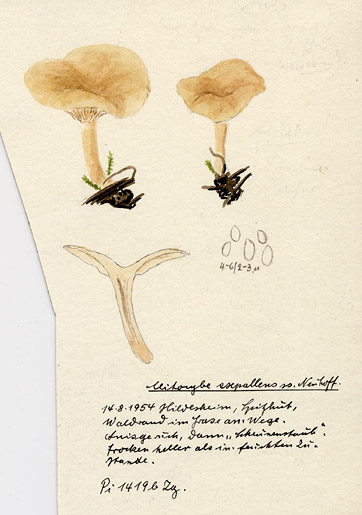 4-6/2-3 µ
Clitocybe expallens ss. Neuhoff.
14.8.1954 Hildesheim,
Waldrand im Grase am Wege.
Anisgeruch, dann „Scheunenstaub“.
Trocken heller als im feuchten Zu-
stande.
Pi 1419b Zg.